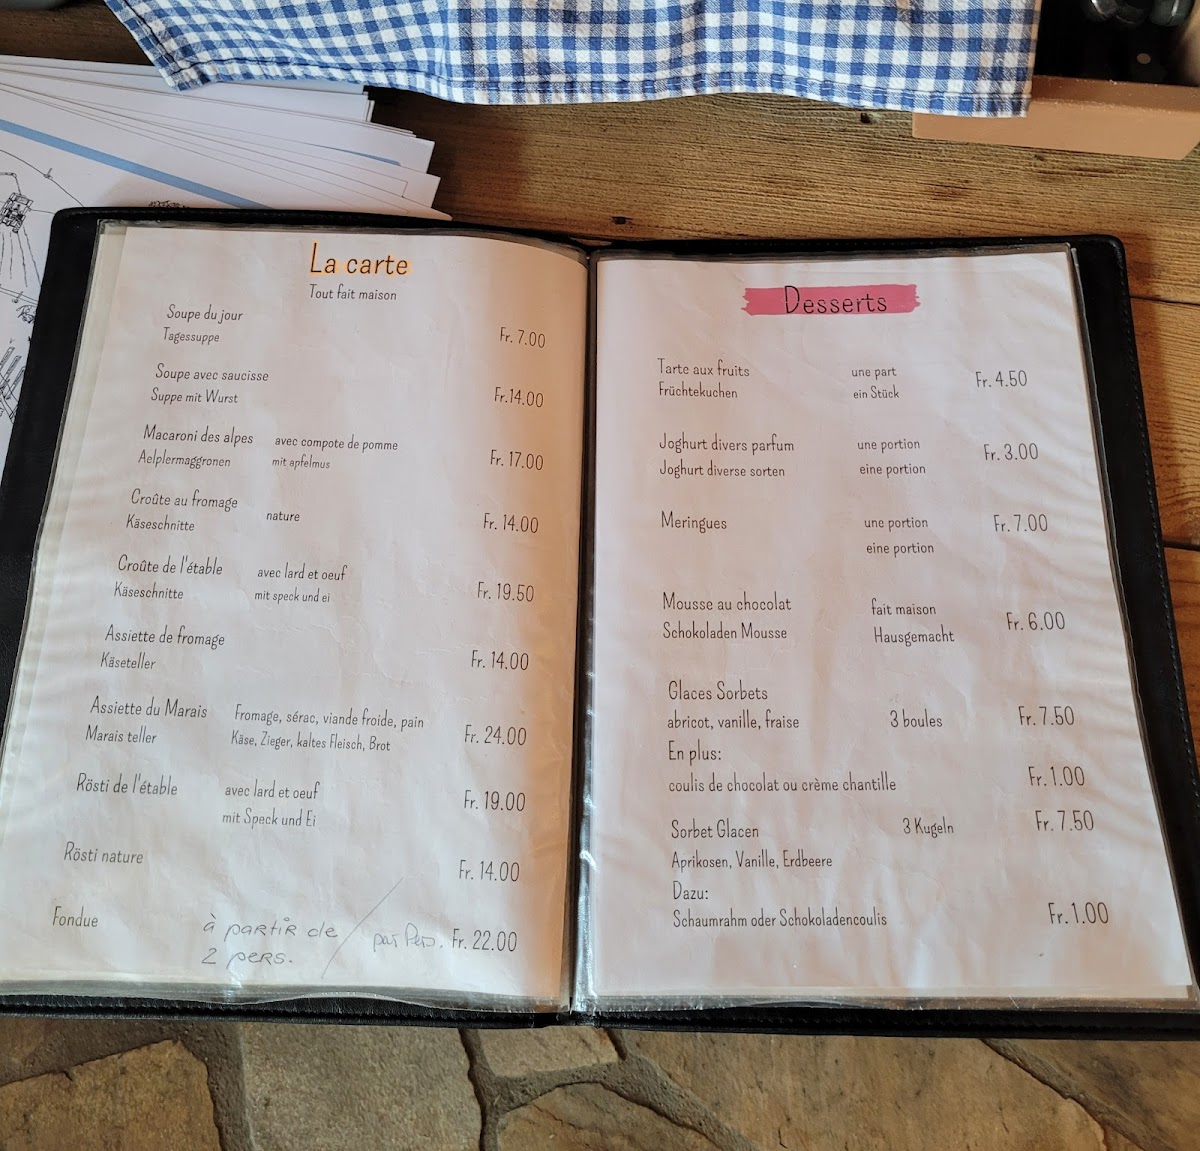 La carte
Tout fait maison
Soupe du jour
Tagessuppe
Fr. 7.00
Soupe avec saucisse
Suppe mit Wurst
Fr.14.00
Macaroni des alpes avec compote de pomme
Aelplermaggronen mit apfelmus
Fr. 17.00
Croûte au fromage nature
Käseschnitte
Fr. 14.00
Croûte de l'étable avec lard et oeuf
Käseschnitte mit speck und ei
Fr. 19.50
Assiette de fromage
Käseteller
Fr. 14.00
Assiette du Marais Fromage, sérac, viande froide, pain
Marais teller Käse, Zieger, kaltes Fleisch, Brot
Fr. 24.00
Rösti de l'étable avec lard et oeuf
mit Speck und Ei
Fr. 19.00
Rösti nature
Fr. 14.00
Fondue à partir de / par Pers. Fr. 22.00
2 pers.
Desserts
Tarte aux fruits une part
Früchtekuchen ein Stück
Fr. 4.50
Joghurt divers parfum une portion
Joghurt diverse sorten eine portion
Fr. 3.00
Meringues une portion Fr. 7.00
eine portion
Mousse au chocolat fait maison
Schokoladen Mousse Hausgemacht
Fr. 6.00
Glaces Sorbets
abricot, vanille, fraise 3 boules Fr. 7.50
En plus:
coulis de chocolat ou crème chantille Fr. 1.00
Sorbet Glacen 3 Kugeln Fr. 7.50
Aprikosen, Vanille, Erdbeere
Dazu:
Schaumrahm oder Schokoladencoulis Fr. 1.00